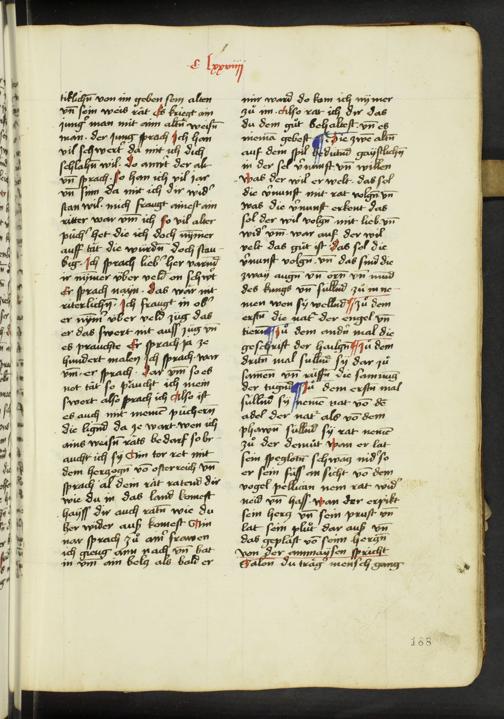 C lxxxiiij
tiklichn von im geben sein alten
vn sein weis rät Es kriegt ain
jung man mit aim altn weisn
man der Jung sprach Ich han
vil schwert da mit ich dich
schlahn wil do antt der alt
vn sprach So han ich vil jar
vn sinn da mit ich dir wid
stan wil mich fraugt ainest ain
ritter war vm ich so vil alter
püch het die ich doch nymer
auff tät die würdn doch stau
big Ich sprach lieb her
ir nymer vber veld on schwt
Er sprach nayn das wär nit
riterlichn Ich fraugt in ob
er nym vber veld zug das
er das swert nit auss zug vn
es prauchte Er sprach ja ze
hundert malen Ich sprach war
vm er sprach Dar vm so es
not tät so praucht ich mein
swert also sprach ich Also ist
es auch mit meinen püchern
die ligend da ze wart wen ich
ains weisn räts bedarf so br
aucht ich sy Ain tor ret mit
dem hertzogn von osterreich vn
sprach al dein rät ratend dir
wie du in das land komest
hayss dir auch ratn wie du
her wider auss komest Ain
nar sprach zu aim frawen
ich gieng ann nach vn bat
in vm ain belg als bald er
mir ward do kam ich nymer
zu im Also rat ich dir das
du dem güt behaltest vn es
niema gebest Die zwe altn
auf dem spil bedeutnd gaystlichn
in der sel vernunft vn willen
was der wil er welt das sol
die vernunft mit rat volgn vn
was die vernunft erkent das
sol der wil volgn mit lieb vn
wid vm war auf der wil
velt das güt ist das sol die
vernunft volgn vn das sind die
zway augn vn orn vn mund
des kungs vn sullnd zu im ne
men wen sy wellnd zu dem
erstn die nat der engel vn
tiern Zu dem andn mal die
geschrift der hailgn Zu dem
dritn mal sullnd sy dar zu
samen vn rüffn die samnug
der tugend Zu dem erstn mal
sullnd sy nemen nat von de
adel der nat als von dem
phawn sullnd sy rat nemen
zu der demüt wan er lat
sein speglotn schwantz nid so
er sein füss an sicht von dem
vogel pellican nem rat wid
neid vn hass wan der erpikt
sein herz vn sein prust vn
lat sein plut dar auss vn
das geplast von seim hertzn
von der ammaysen spricht
Salon du träg mensch gang
188